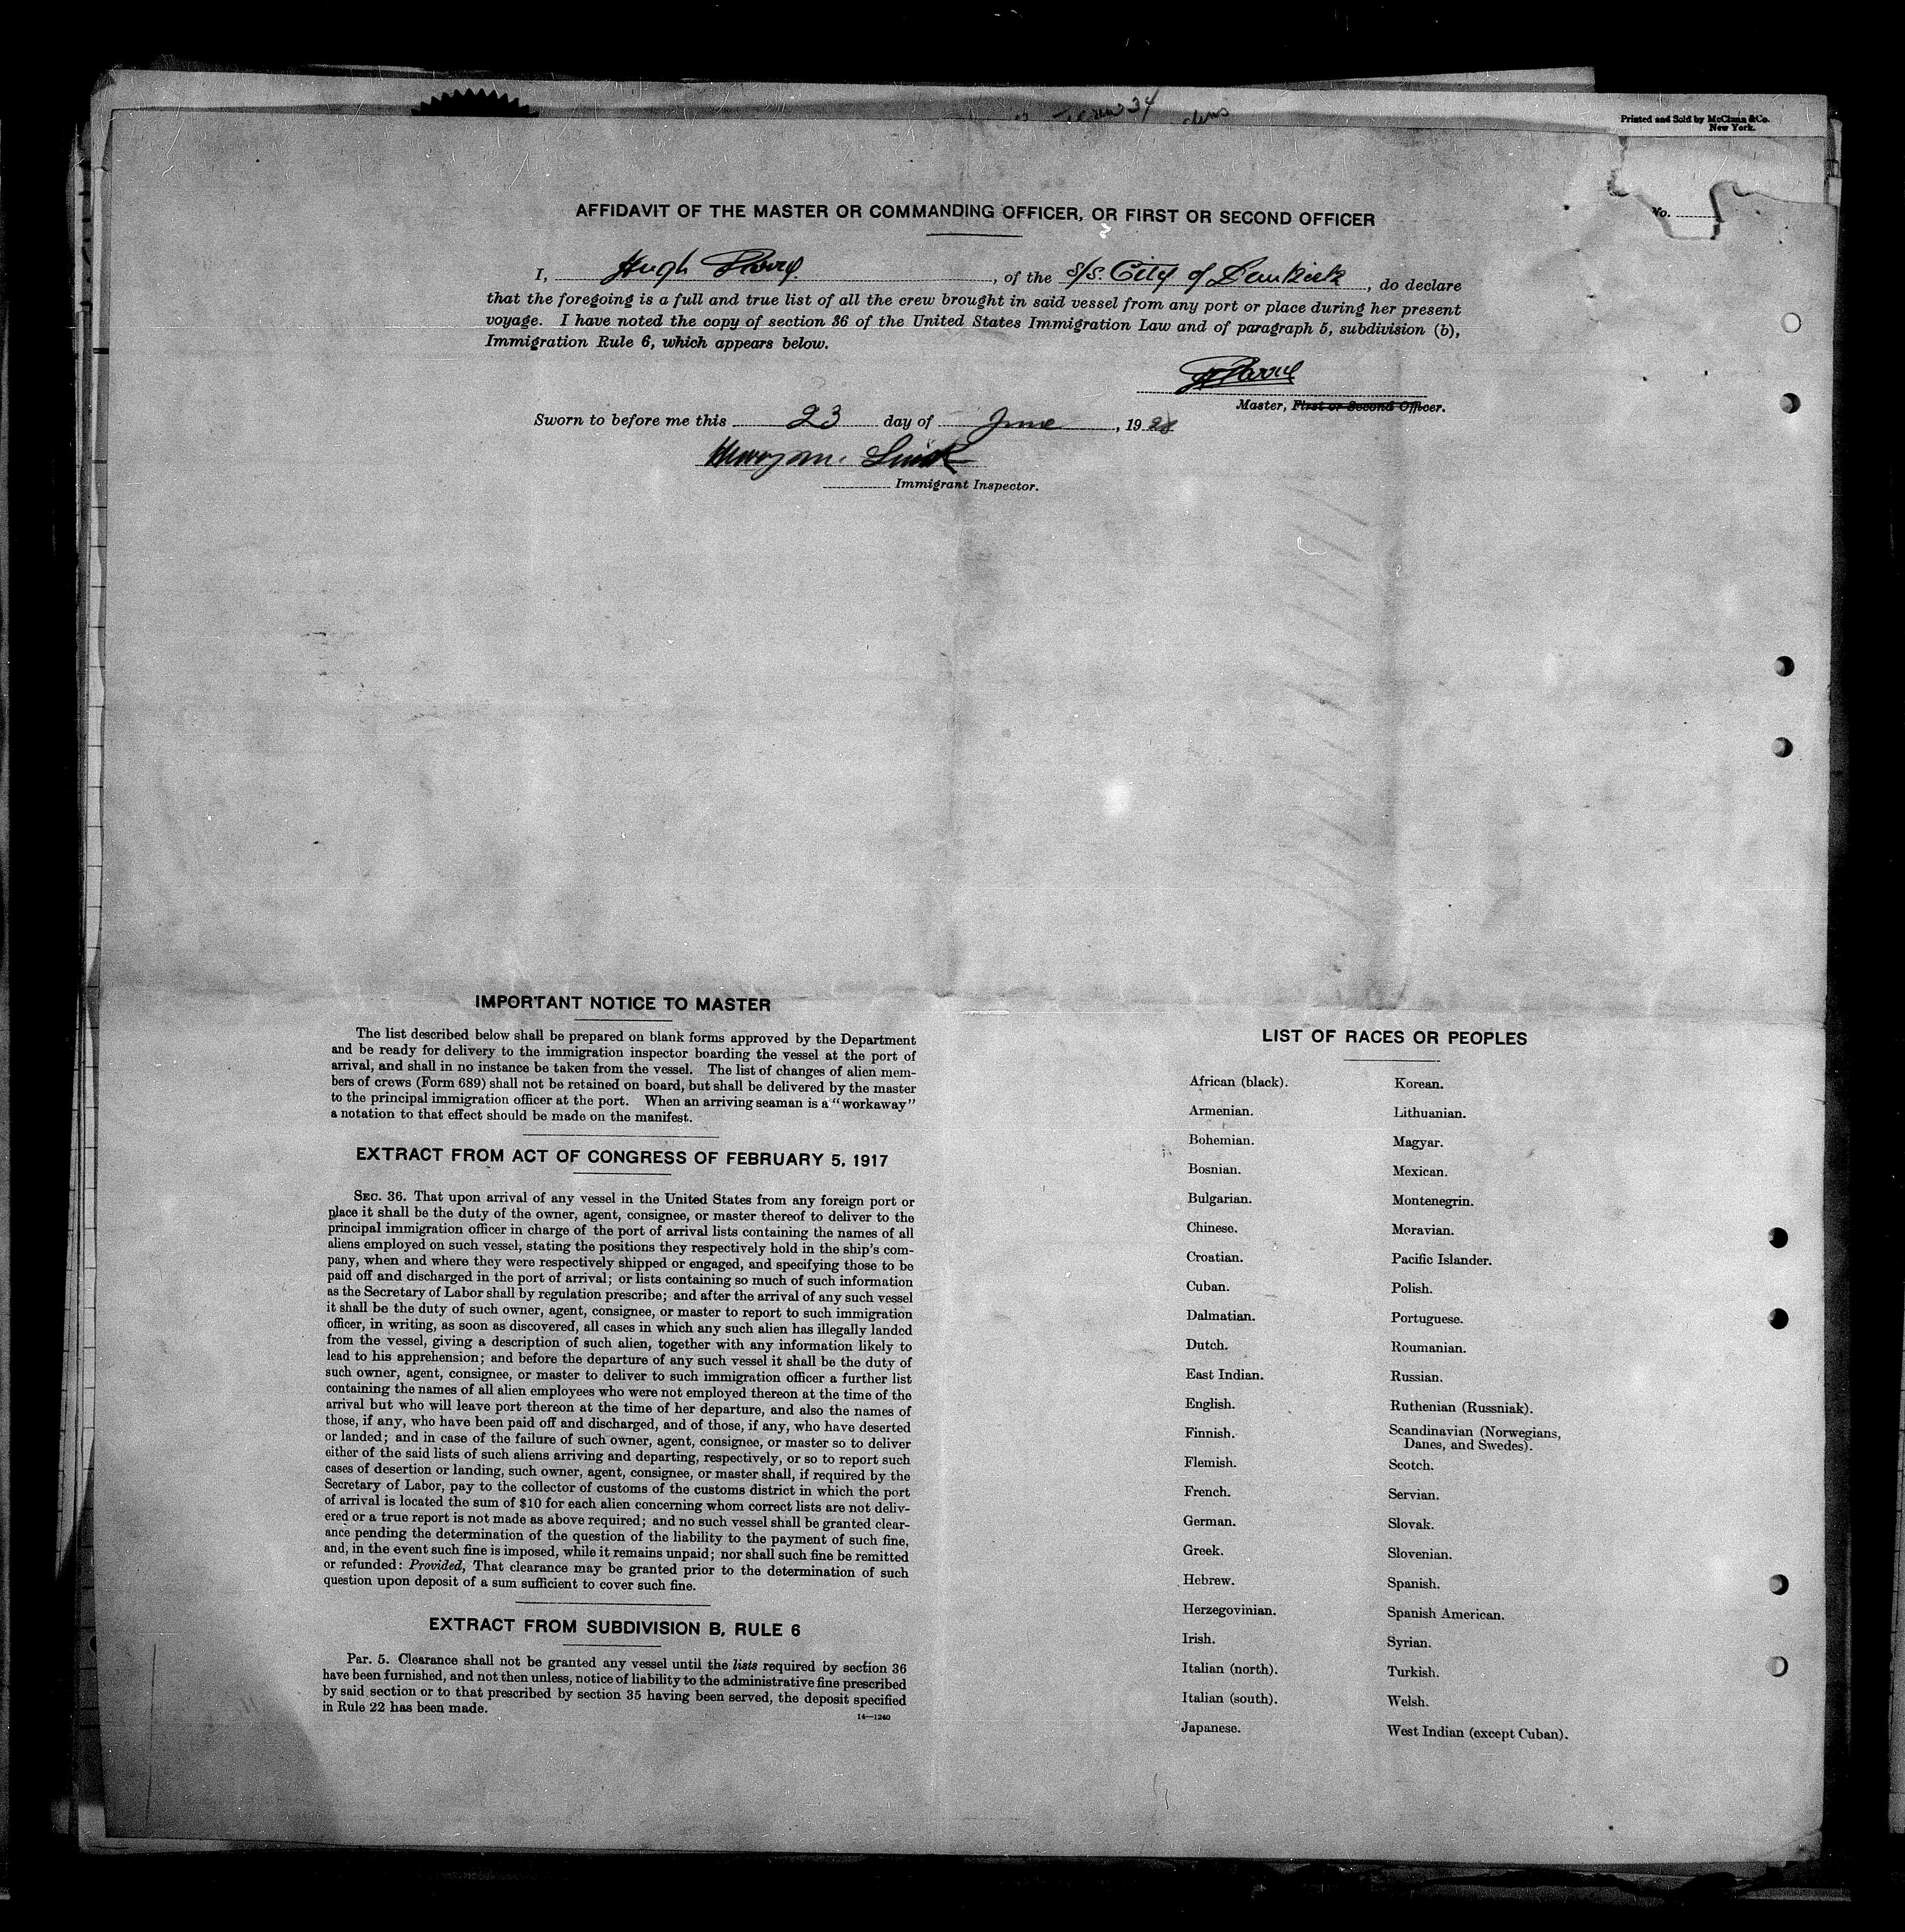 Printed and Sold by McClunn & Co.
New York.
No.
AFFIDAVIT OF THE MASTER OR COMMANDING OFFICER, OR FIRST OR SECOND OFFICER
I, Hugh Parry, of the S/S. City of Dunkirk, do declare
that the foregoing is a full and true list of all the crew brought in said vessel from any port or place during her present
voyage. I have noted the copy of section 36 of the United States Immigration Law and of paragraph 5, subdivision (b),
Immigration Rule 6, which appears below.
Master, First or Second Officer.
Sworn to before me this 23 day of June, 1928
Immigrant Inspector.
IMPORTANT NOTICE TO MASTER
The list described below shall be prepared on blank forms approved by the Department
and be ready for delivery to the immigration inspector boarding the vessel at the port of
arrival, and shall in no instance be taken from the vessel. The list of changes of alien mem-
bers of crews (Form 689) shall not be retained on board, but shall be delivered by the master
to the principal immigration officer at the port. When an arriving seaman is a "workaway"
a notation to that effect should be made on the manifest.
EXTRACT FROM ACT OF CONGRESS OF FEBRUARY 5, 1917
SEC. 36. That upon arrival of any vessel in the United States from any foreign port or
place it shall be the duty of the owner, agent, consignee, or master thereof to deliver to the
principal immigration officer in charge of the port of arrival lists containing the names of all
aliens employed on such vessel, stating the positions they respectively hold in the ship's com-
pany, when and where they were respectively shipped or engaged, and specifying those to be
paid off and discharged in the port of arrival; or lists containing so much of such information
as the Secretary of Labor shall by regulation prescribe; and after the arrival of any such vessel
it shall be the duty of such owner, agent, consignee, or master to report to such immigration
officer, in writing, as soon as discovered, all cases in which any such alien has illegally landed
from the vessel, giving a description of such alien, together with any information likely to
lead to his apprehension; and before the departure of any such vessel it shall be the duty of
such owner, agent, consignee, or master to deliver to such immigration officer a further list
containing the names of all alien employees who were not employed thereon at the time of the
arrival but who will leave port thereon at the time of her departure, and also the names of
those, if any, who have been paid off and discharged, and of those, if any, who have deserted
or landed; and in case of the failure of such owner, agent, consignee, or master so to deliver
either of the said lists of such aliens arriving and departing, respectively, or so to report such
cases of desertion or landing, such owner, agent, consignee, or master shall, if required by the
Secretary of Labor, pay to the collector of customs of the customs district in which the port
of arrival is located the sum of $10 for each alien concerning whom correct lists are not deliv-
ered or a true report is not made as above required; and no such vessel shall be granted clear-
ance pending the determination of the question of the liability to the payment of such fine,
and, in the event such fine is imposed, while it remains unpaid; nor shall such fine be remitted
or refunded: Provided, That clearance may be granted prior to the determination of such
question upon deposit of a sum sufficient to cover such fine.
EXTRACT FROM SUBDIVISION B, RULE 6
Par. 5. Clearance shall not be granted any vessel until the lists required by section 36
have been furnished, and not then unless, notice of liability to the administrative fine prescribed
by said section or to that prescribed by section 35 having been served, the deposit specified
in Rule 22 has been made.
14—1240
LIST OF RACES OR PEOPLES
African (black).
Armenian.
Bohemian.
Bosnian.
Bulgarian.
Chinese.
Croatian.
Cuban.
Dalmatian.
Dutch.
East Indian.
English.
Finnish.
Flemish.
French.
German.
Greek.
Hebrew.
Herzegovinian.
Irish.
Italian (north).
Italian (south).
Japanese.
Korean.
Lithuanian.
Magyar.
Mexican.
Montenegrin.
Moravian.
Pacific Islander.
Polish.
Portuguese.
Roumanian.
Russian.
Ruthenian (Russniak).
Scandinavian (Norwegians,
Danes, and Swedes).
Scotch.
Servian.
Slovak.
Slovenian.
Spanish.
Spanish American.
Syrian.
Turkish.
Welsh.
West Indian (except Cuban).